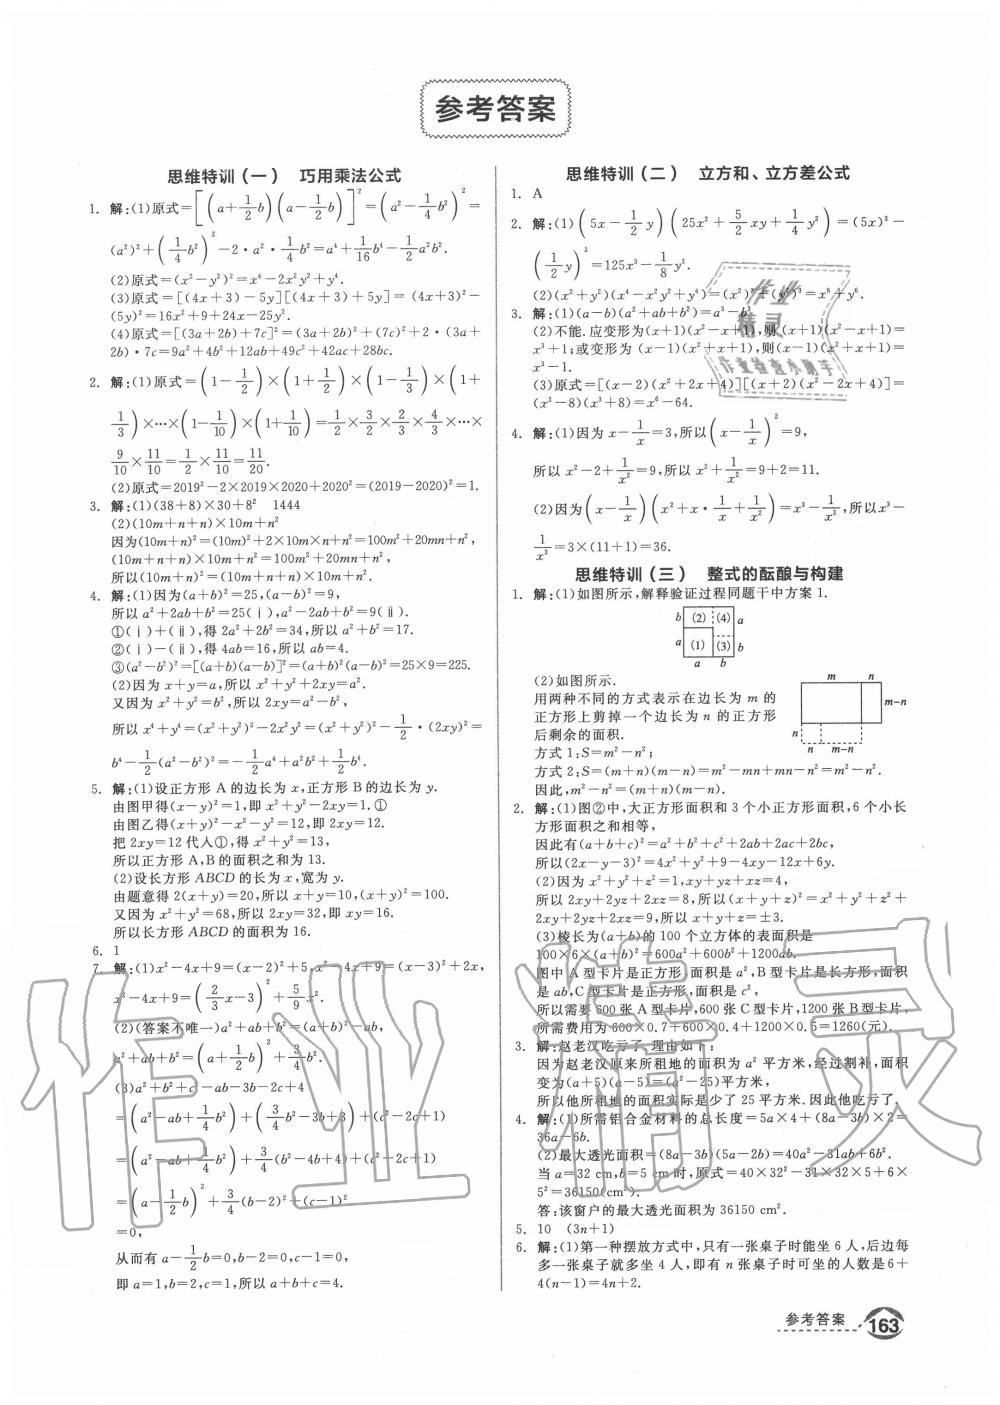 参考答案
思维特训(一)　巧用乘法公式
1. 解:(1)原式=[(a+1/2b)(a-1/2b)]²=(a²-1/4b²)²=
(a²)²+(1/4b²)²-2·a²·1/4b²=a⁴+1/16b⁴-1/2a²b².
(2)原式=(x²-y²)²=x⁴-2x²y²+y⁴.
(3)原式=[(4x+3)-5y][(4x+3)+5y]=(4x+3)²-
(5y)²=16x²+9+24x-25y².
(4)原式=[(3a+2b)+7c]²=(3a+2b)²+(7c)²+2·(3a+
2b)·7c=9a²+4b²+12ab+49c²+42ac+28bc.
2. 解:(1)原式=(1-1/2)×(1+1/2)×(1-1/3)×(1+
1/3)×…×(1-1/10)×(1+1/10)=1/2×3/2×2/3×4/3×…×
9/10×11/10=1/2×11/10=11/20.
(2)原式=2019²-2×2019×2020+2020²=(2019-2020)²=1.
3. 解:(1)(38+8)×30+8²　1444
(2)(10m+n+n)×10m+n²
因为(10m+n)²=(10m)²+2×10m×n+n²=100m²+20mn+n²,
(10m+n+n)×10m+n²=100m²+20mn+n²,
所以(10m+n)²=(10m+n+n)×10m+n².
4. 解:(1)因为(a+b)²=25,(a-b)²=9,
所以a²+2ab+b²=25(ⅰ),a²-2ab+b²=9(ⅱ).
①(ⅰ)+(ⅱ),得2a²+2b²=34,所以a²+b²=17.
②(ⅰ)-(ⅱ),得4ab=16,所以ab=4.
③(a²-b²)²=[(a+b)(a-b)]²=(a+b)²(a-b)²=25×9=225.
(2)因为x+y=a,所以x²+y²+2xy=a².
又因为x²+y²=b²,所以2xy=a²-b²,
所以x⁴+y⁴=(x²+y²)²-2x²y²=(x²+y²)²-1/2·(2xy)²=
b⁴-1/2(a²-b²)²=-1/2a⁴+a²b²+1/2b⁴.
5. 解:(1)设正方形A的边长为x,正方形B的边长为y.
由图甲得(x-y)²=1,即x²+y²-2xy=1.①
由图乙得(x+y)²-x²-y²=12,即2xy=12.
把2xy=12代入①,得x²+y²=13,
所以正方形A,B的面积之和为13.
(2)设长方形ABCD的长为x,宽为y.
由题意得2(x+y)=20,所以x+y=10,(x+y)²=100.
又因为x²+y²=68,所以2xy=32,即xy=16.
所以长方形ABCD的面积为16.
6. 1
7. 解:(1)x²-4x+9=(x-2)²+5,x²-4x+9=(x-3)²+2x,
x²-4x+9=(2/3x-3)²+5/9x².
(2)(答案不唯一)a²+ab+b²=(a+b)²-ab,
a²+ab+b²=(a+1/2b)²+3/4b².
(3)a²+b²+c²-ab-3b-2c+4
=(a²-ab+1/4b²)+(3/4b²-3b+3)+(c²-2c+1)
=(a²-ab+1/4b²)+3/4(b²-4b+4)+(c²-2c+1)
=(a-1/2b)²+3/4(b-2)²+(c-1)²
=0,
从而有a-1/2b=0,b-2=0,c-1=0,
即a=1,b=2,c=1,所以a+b+c=4.
思维特训(二)　立方和、立方差公式
1. A
2. 解:(1)(5x-1/2y)(25x²+5/2xy+1/4y²)=(5x)³-
(1/2y)³=125x³-1/8y³.
(2)(x²+y²)(x⁴-x²y²+y⁴)=(x²)³+(y²)³=x⁶+y⁶.
3. 解:(1)(a-b)(a²+ab+b²)=a³-b³
(2)不能.应变形为(x+1)(x²-x+1),则(x+1)(x²-x+1)=
x³+1;或变形为(x-1)(x²+x+1),则(x-1)(x²+x+1)=
x³-1.
(3)原式=[(x-2)(x²+2x+4)][(x+2)(x²-2x+4)]=
(x³-8)(x³+8)=x⁶-64.
4. 解:(1)因为x-1/x=3,所以(x-1/x)²=9,
所以x²-2+1/x²=9,所以x²+1/x²=9+2=11.
(2)因为(x-1/x)(x²+x·1/x+1/x²)=x³-1/x³,所以x³-
1/x³=3×(11+1)=36.
思维特训(三)　整式的酝酿与构建
1. 解:(1)如图所示,解释验证过程同题干中方案1.
b (2) (4) a
a (1) (3) b
a b
(2)如图所示.
用两种不同的方式表示在边长为m的
正方形上剪掉一个边长为n的正方形
后剩余的面积.
m n
m-n
n
n m-n
方式1:S=m²-n²;
方式2:S=(m+n)(m-n)=m²-mn+mn-n²=m²-n².
因此,m²-n²=(m+n)(m-n).
2. 解:(1)图②中,大正方形面积和3个小正方形面积,6个小长
方形面积之和相等,
因此有(a+b+c)²=a²+b²+c²+2ab+2ac+2bc,
所以(2x-y-3)²=4x²+y²+9-4xy-12x+6y.
(2)因为x²+y²+z²=1,xy+yz+xz=4,
所以2xy+2yz+2xz=8,所以(x+y+z)²=x²+y²+z²+
2xy+2yz+2xz=9,所以x+y+z=±3.
(3)棱长为(a+b)的100个立方体的表面积是
100×6×(a+b)²=600a²+600b²+1200ab.
图中A型卡片是正方形,面积是a²,B型卡片是长方形,面积
是ab,C型卡片是正方形,面积是c²,
所以需要600张A型卡片,600张C型卡片,1200张B型卡片,
所需费用为600×0.7+600×0.4+1200×0.5=1260(元).
3. 解:赵老汉吃亏了.理由如下:
因为赵老汉原来所租地的面积为a²平方米,经过割补,面积
变为(a+5)(a-5)=(a²-25)平方米,
所以他所租地的面积实际是少了25平方米.因此他吃亏了.
4. 解:(1)所需铝合金材料的总长度=5a×4+(8a-3b)×2=
36a-6b.
(2)最大透光面积=(8a-3b)(5a-2b)=40a²-31ab+6b².
当a=32 cm,b=5 cm时,原式=40×32²-31×32×5+6×
5²=36150(cm²).
答:该窗户的最大透光面积为36150 cm².
5. 10　(3n+1)
6. 解:(1)第一种摆放方式中,只有一张桌子时能坐6人,后边每
多一张桌子就多坐4人,即有n张桌子时可坐的人数是6+
4(n-1)=4n+2.
参考答案 163
作业精灵
作业检查小助手
作业精灵